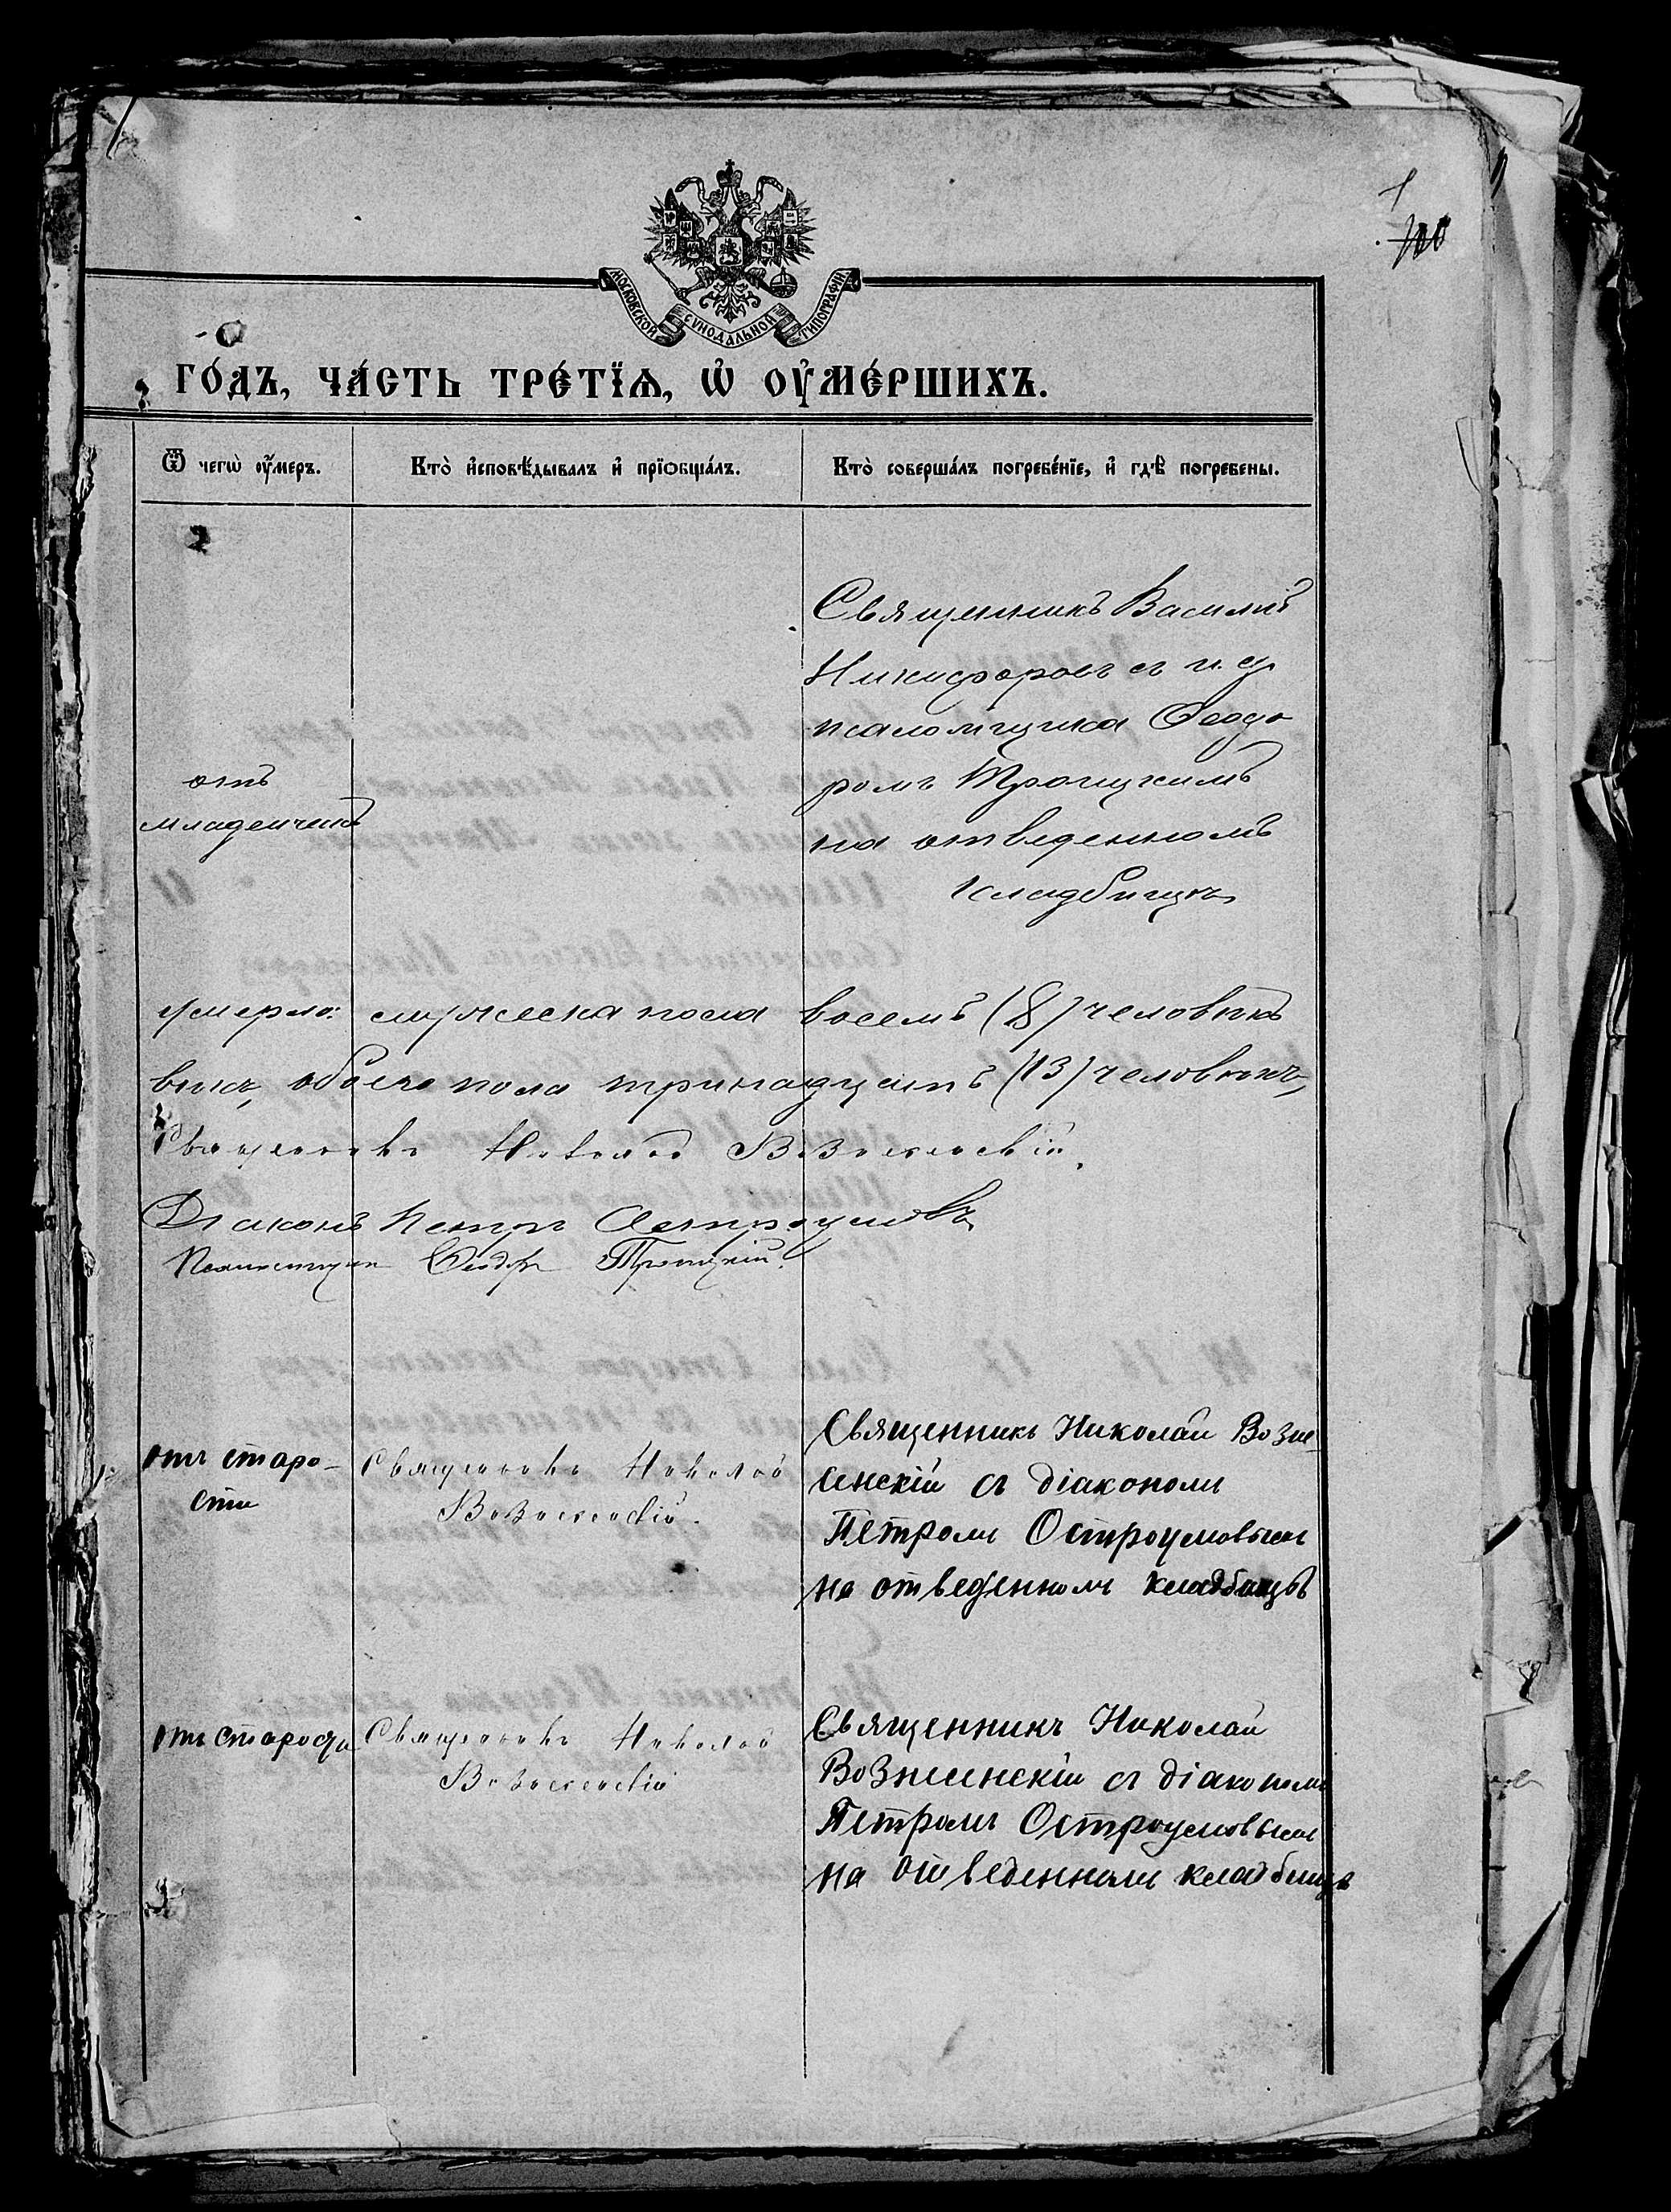 1
100
МОСКОВСКОЙ СѴНОДАЛЬНОЙ ТИПОГРАФІИ
ГО́ДЪ, ЧА́СТЬ ТРЕ́ТЇѦ, Ѡ҆ ОУ҆МЕ́РШИХЪ.
Ѿ чегѡ̀ оу҆́меръ.
Кто̀ и҆сповѣ́дывалъ и҆ прїѻбща́лъ.
Кто̀ соверша́лъ погребе́нїе, и҆ гдѣ̀ погребены.
Священникъ Василій
Никифоровъ съ и. д.
псаломщика Ѳеодо
ромъ Троицкимъ
на отведенномъ
кладбищѣ
отъ
младенческ
умерло: мужеска пола восемь (8) человѣкъ
вѣкъ, обоего пола тринадцать (13) человѣкъ,
Священникъ Николай Вознесенскій.
Діаконъ Петръ Остроумовъ
Псаломщикъ Ѳеодоръ Троицкій.
отъ старо-
сти
Священникъ Николай
Вознесенскій.
Священникъ Николай Возне-
сенскій съ діакономъ
Петромъ Остроумовымъ
на отведенномъ кладбищѣ
отъ старости
Священникъ Николай
Вознесенскій
Священникъ Николай
Вознесенскій съ діакономъ
Петромъ Остроумовымъ
на отведенномъ кладбищѣ